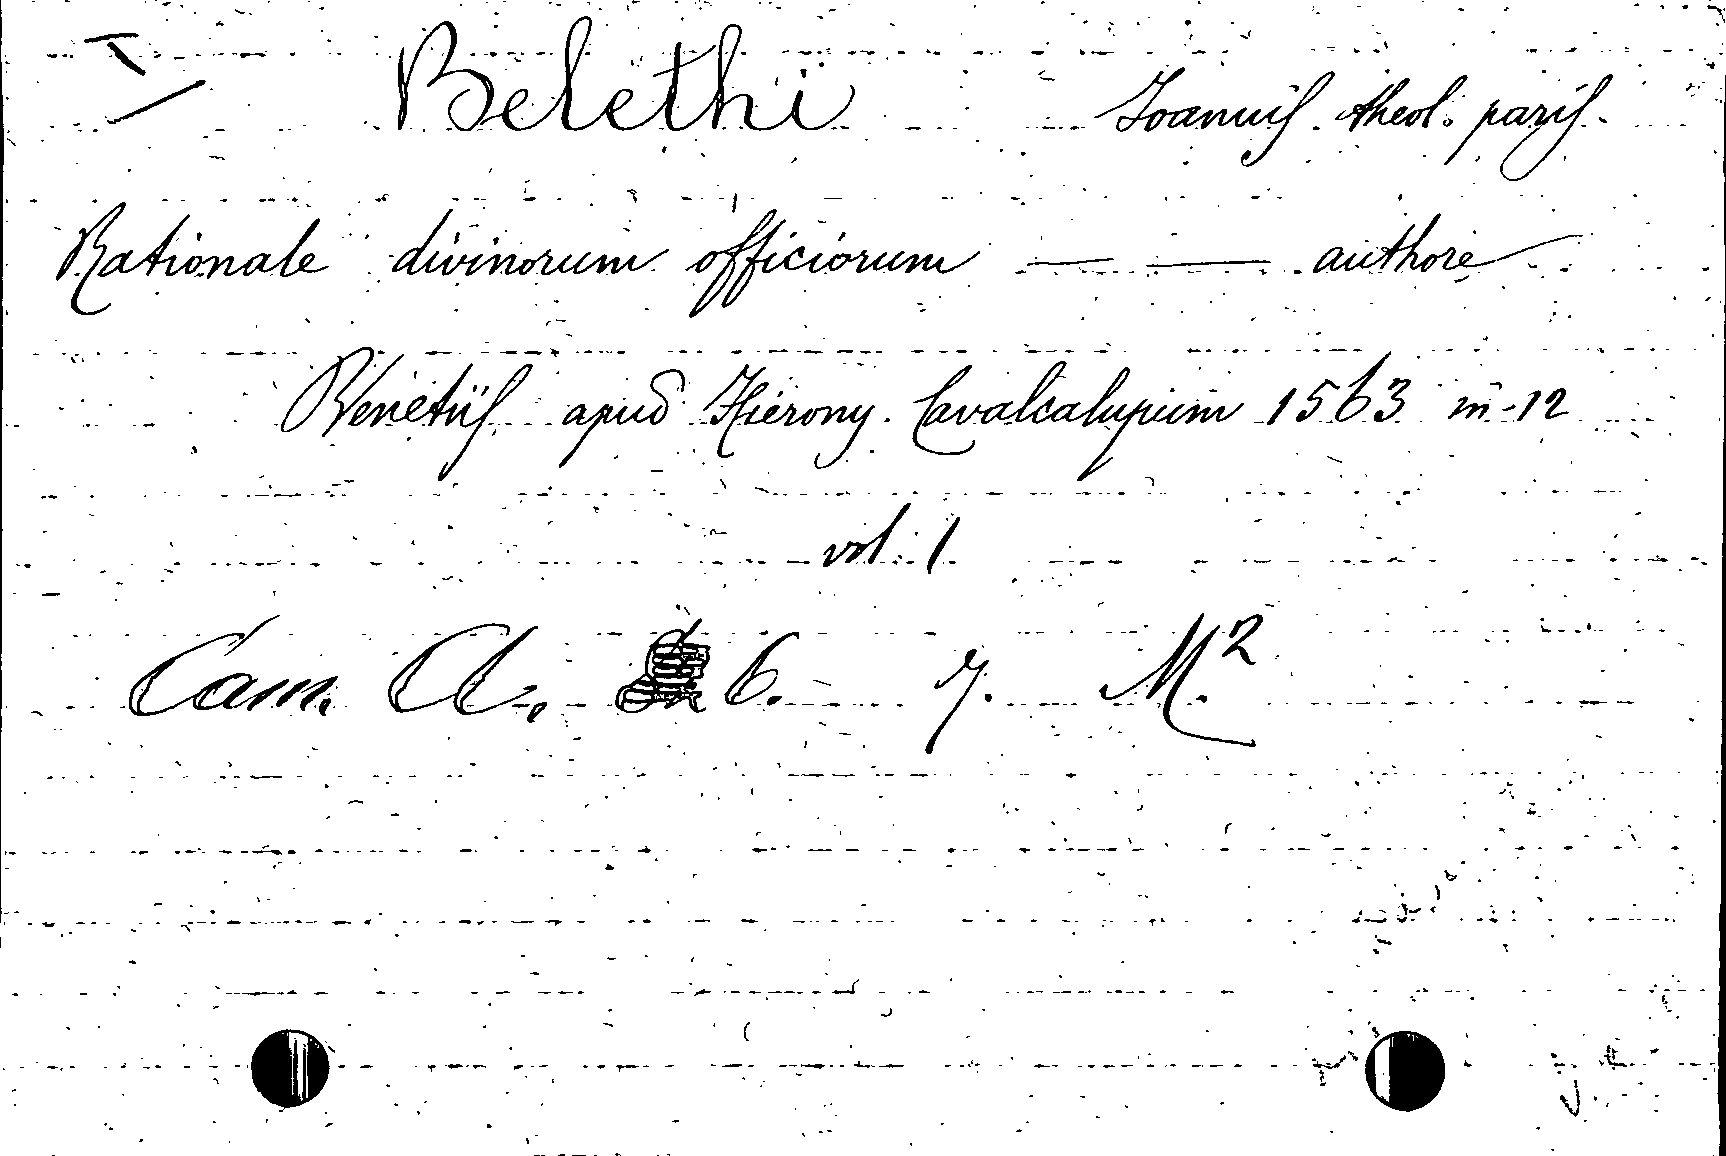 Belethi Joannis theol. paris.
Rationale divinorum officiorum — — authore
Venetiis apud Hierony. Cavalcalupum 1563 in-12
vol. 1
Cam. A. 6. 7. M.2